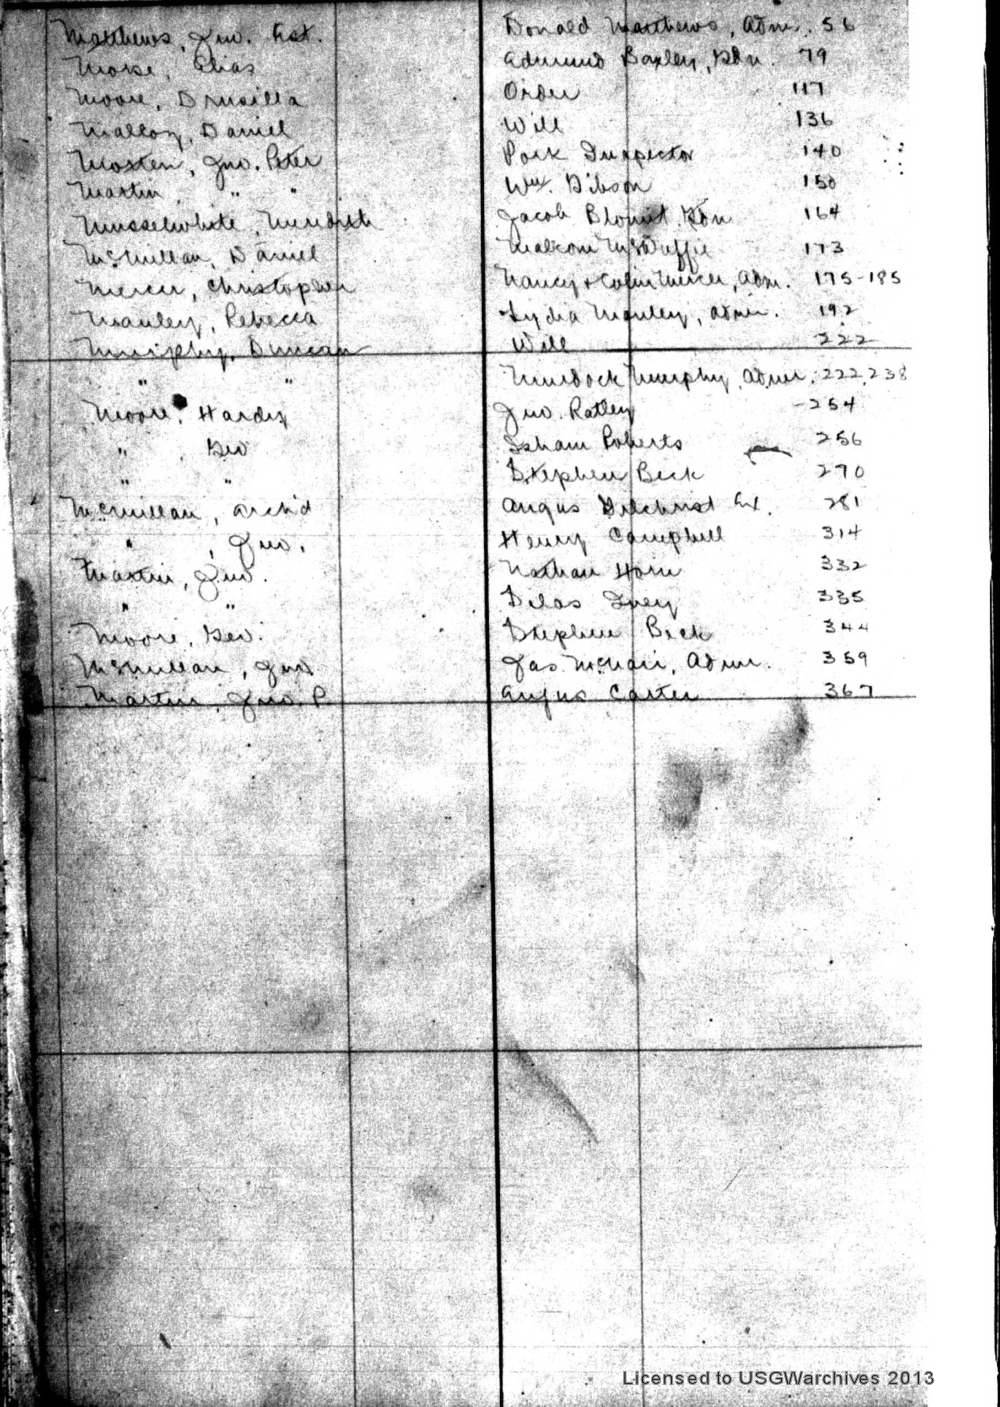 Matthews, Jno. Est. Donald Matthews, Adm. 56
Morse, Elias Edmund Baxley, Gdn. 79
Moore, Drusilla Order 117
Malloy, Daniel Will 136
Mosten, Jno. Peter Pork Inspector 140
Martin, " " Wm. Dibson 150
Musselwhite, Meredith Jacob Blount, Gdn 164
McMillan, Daniel Malcom McDuffie 173
Mercer, Christopher Nancy & Colin Mercer, Adm. 175-185
Manley, Rebecca Lydia Manley, Adm. 192
Murphy, Duncan Will 222
" " Murdock Murphy, Admr. 222, 238
Moore, Hardy Jno. Ratley -254
" , Geo Isham Roberts 256
" " Stephen Beck 270
McMillan, Arch'd Angus Gilchrist Ex. 281
" , Jno. Henry Campbell 314
Martin, Jno. Nathan Horn 332
" " Silas Ivey 335
Moore, Geo. Stephen Beck 344
McMillan, Jno Jas. McNair, Admr. 359
Martin, Jno. P. Angus Carter 367
Licensed to USGWarchives 2013